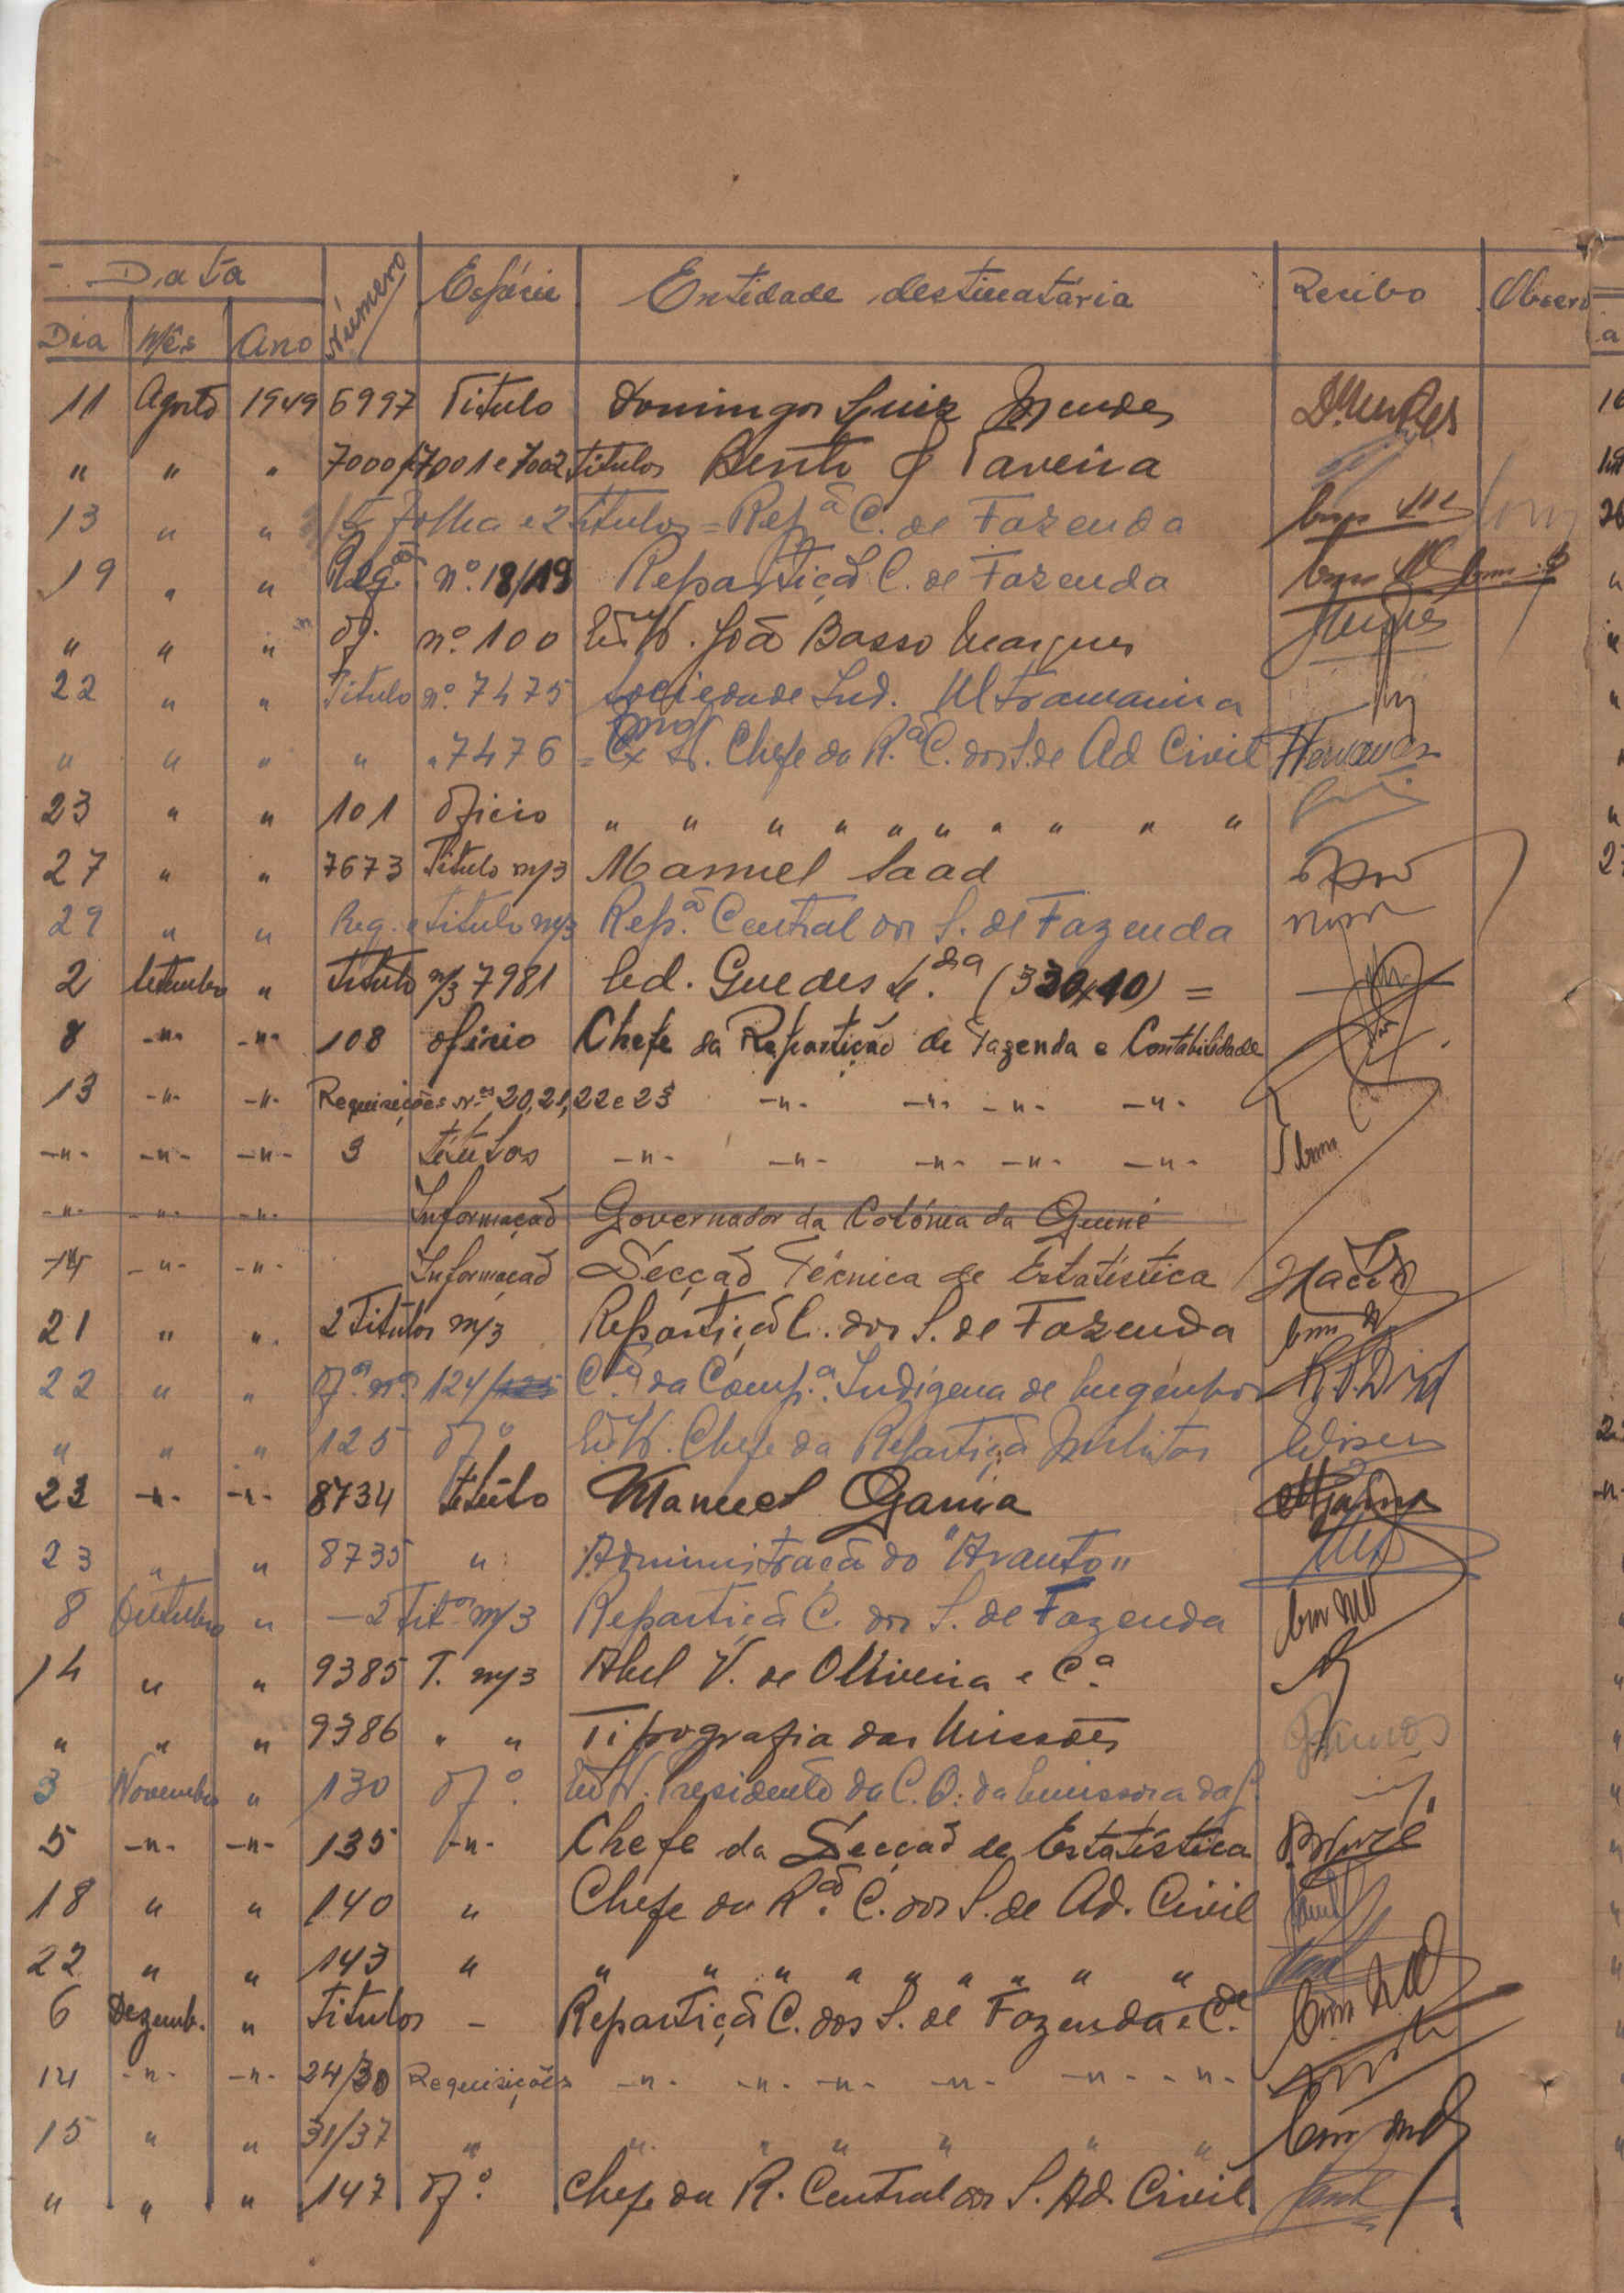 Data Número Espécie Entidade destinatária Recibo Observ
Dia Mês Ano
11 Agosto 1949 6997 Titulo Domingos Luiz Mendes
" " " 7000/7001 e 7002 Titulos Bento & Taveira
13 " " Folha e 2 Titulos = Rep.ã C. de Fazenda
19 " " Reg. nº. 18/19 Repartiçã C. de Fazenda
" " " Of. nº. 100 João Basso Marques
22 " " Titulo nº. 7475 Sociedade Ind. Ultramarina
" " " " " 7476 = Exmo Sr. Chefe da R.ã C. dos S. de Ad Civil
23 " " 101 Oficio " " " " " " " " " "
27 " " 7673 Titulo m/3 Manuel Saad
29 " " Reg. e titulo m/3 Rep.ã Central dos S. de Fazenda
2 Setembro " Titulo m/3 7981 Ed. Guedes L.da (330,40) =
8 -"- -"- 108 ofício Chefe da Repartição de Fazenda e Contabilidade
13 -"- -"- Requisições Nos 20,21,22 e 23 -"- -"- -"- -"-
-"- -"- -"- 3 títulos -"- -"- -"- -"- -"-
-"- -"- -"- Informação Governador da Colónia da Guiné
14 -"- -"- Informação Secção Técnica de Estatística
21 " " 2 Titulos m/3 Repartiçã C. dos S. de Fazenda
22 " " Of.os nos 124/125 C.te da Comp.a Indígena de Engenhos
" " " 125 Of.o Chefe da Repartiçã Militar
23 -"- -"- 8734 título Manuel Gama
23 " " 8735 " Administraçã do "Arauto"
8 Outubro " -2 Tit.os m/3 Repartiçã C. dos S. de Fazenda
14 " " 9385 T. m/3 Abel V. de Oliveira e C.a
" " " 9386 " " Tipografia das Missões
3 Novembro " 130 Of.o Presidente da C. O. da Emissora da
5 -"- -"- 135 -"- Chefe da Secção de Estatística
18 " " 140 " Chefe da R.ão C. dos S. de Ad. Civil
22 " " 143 " " " " " " " " " "
6 Dezemb. " Titulos - Repartiçã C. dos S. de Fazenda e C.de
14 -"- -"- 24/30 Requisições -"- -"- -"- -"- -"- -"-
15 " " 31/37 " " " " " " "
" " " 147 Of.o Chefe da R. Central dos S. Ad. Civil